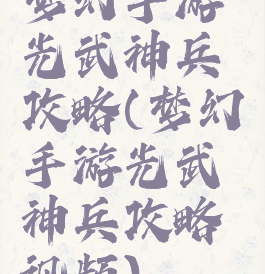 梦幻手游
光武神兵
攻略(梦幻
手游光武
神兵攻略
视频)